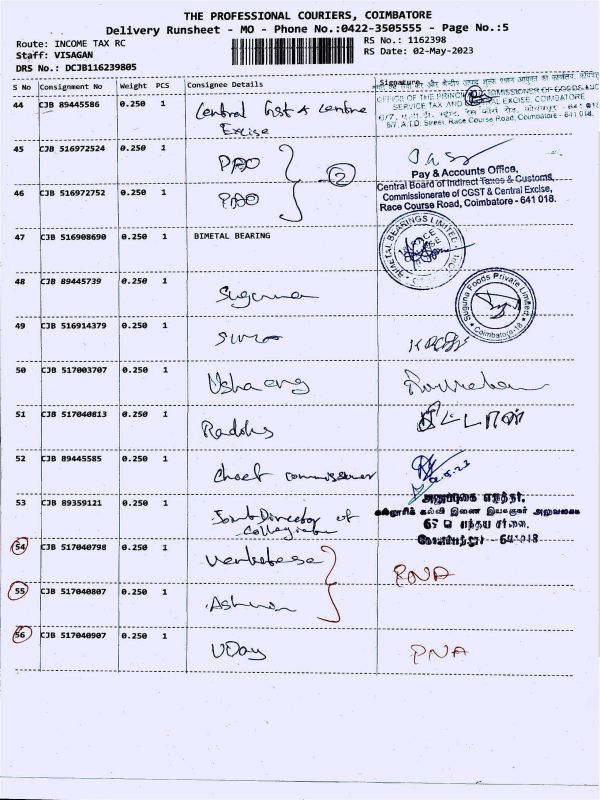 THE PROFESSIONAL COURIERS, COIMBATORE
Delivery Runsheet - MO - Phone No.:0422-3505555 - Page No.:5
Route: INCOME TAX RC
RS No.: 1162398
Staff: VISAGAN
RS Date: 02-May-2023
DRS No.: DCJB116239805
S No Consignment No Weight PCS Consignee Details Signature
44 CJB 89445586 0.250 1 Central Gst & Centre Excise
OFFICE OF THE PRINCIPAL COMMISSIONER OF GOODS AND
SERVICE TAX AND CENTRAL EXCISE, COIMBATORE
6/7, A.T.D. Street, Race Course Road, Coimbatore - 641 018
45 CJB 516972524 0.250 1 PAO
Pay & Accounts Office,
Central Board of Indirect Taxes & Customs,
46 CJB 516972752 0.250 1 PAO
2
Commissionerate of CGST & Central Excise,
Race Course Road, Coimbatore - 641 018.
47 CJB 516908690 0.250 1 BIMETAL BEARING
BIMETAL BEARINGS LIMITED
48 CJB 89445739 0.250 1 Suguna
Suguna Foods Private Limited
Coimbatore-18
49 CJB 516914379 0.250 1
50 CJB 517003707 0.250 1 Usha eng
51 CJB 517040813 0.250 1 Radhs
52 CJB 89445585 0.250 1 Cheef commissioner
53 CJB 89359121 0.250 1 Joint Director of
கல்லூரிக் கல்வி இணை இயக்குநர் அலுவலகம்
54 CJB 517040798 0.250 1 Venkatesa
PNA
55 CJB 517040807 0.250 1 Ashwin
56 CJB 517040907 0.250 1 UDay PNA